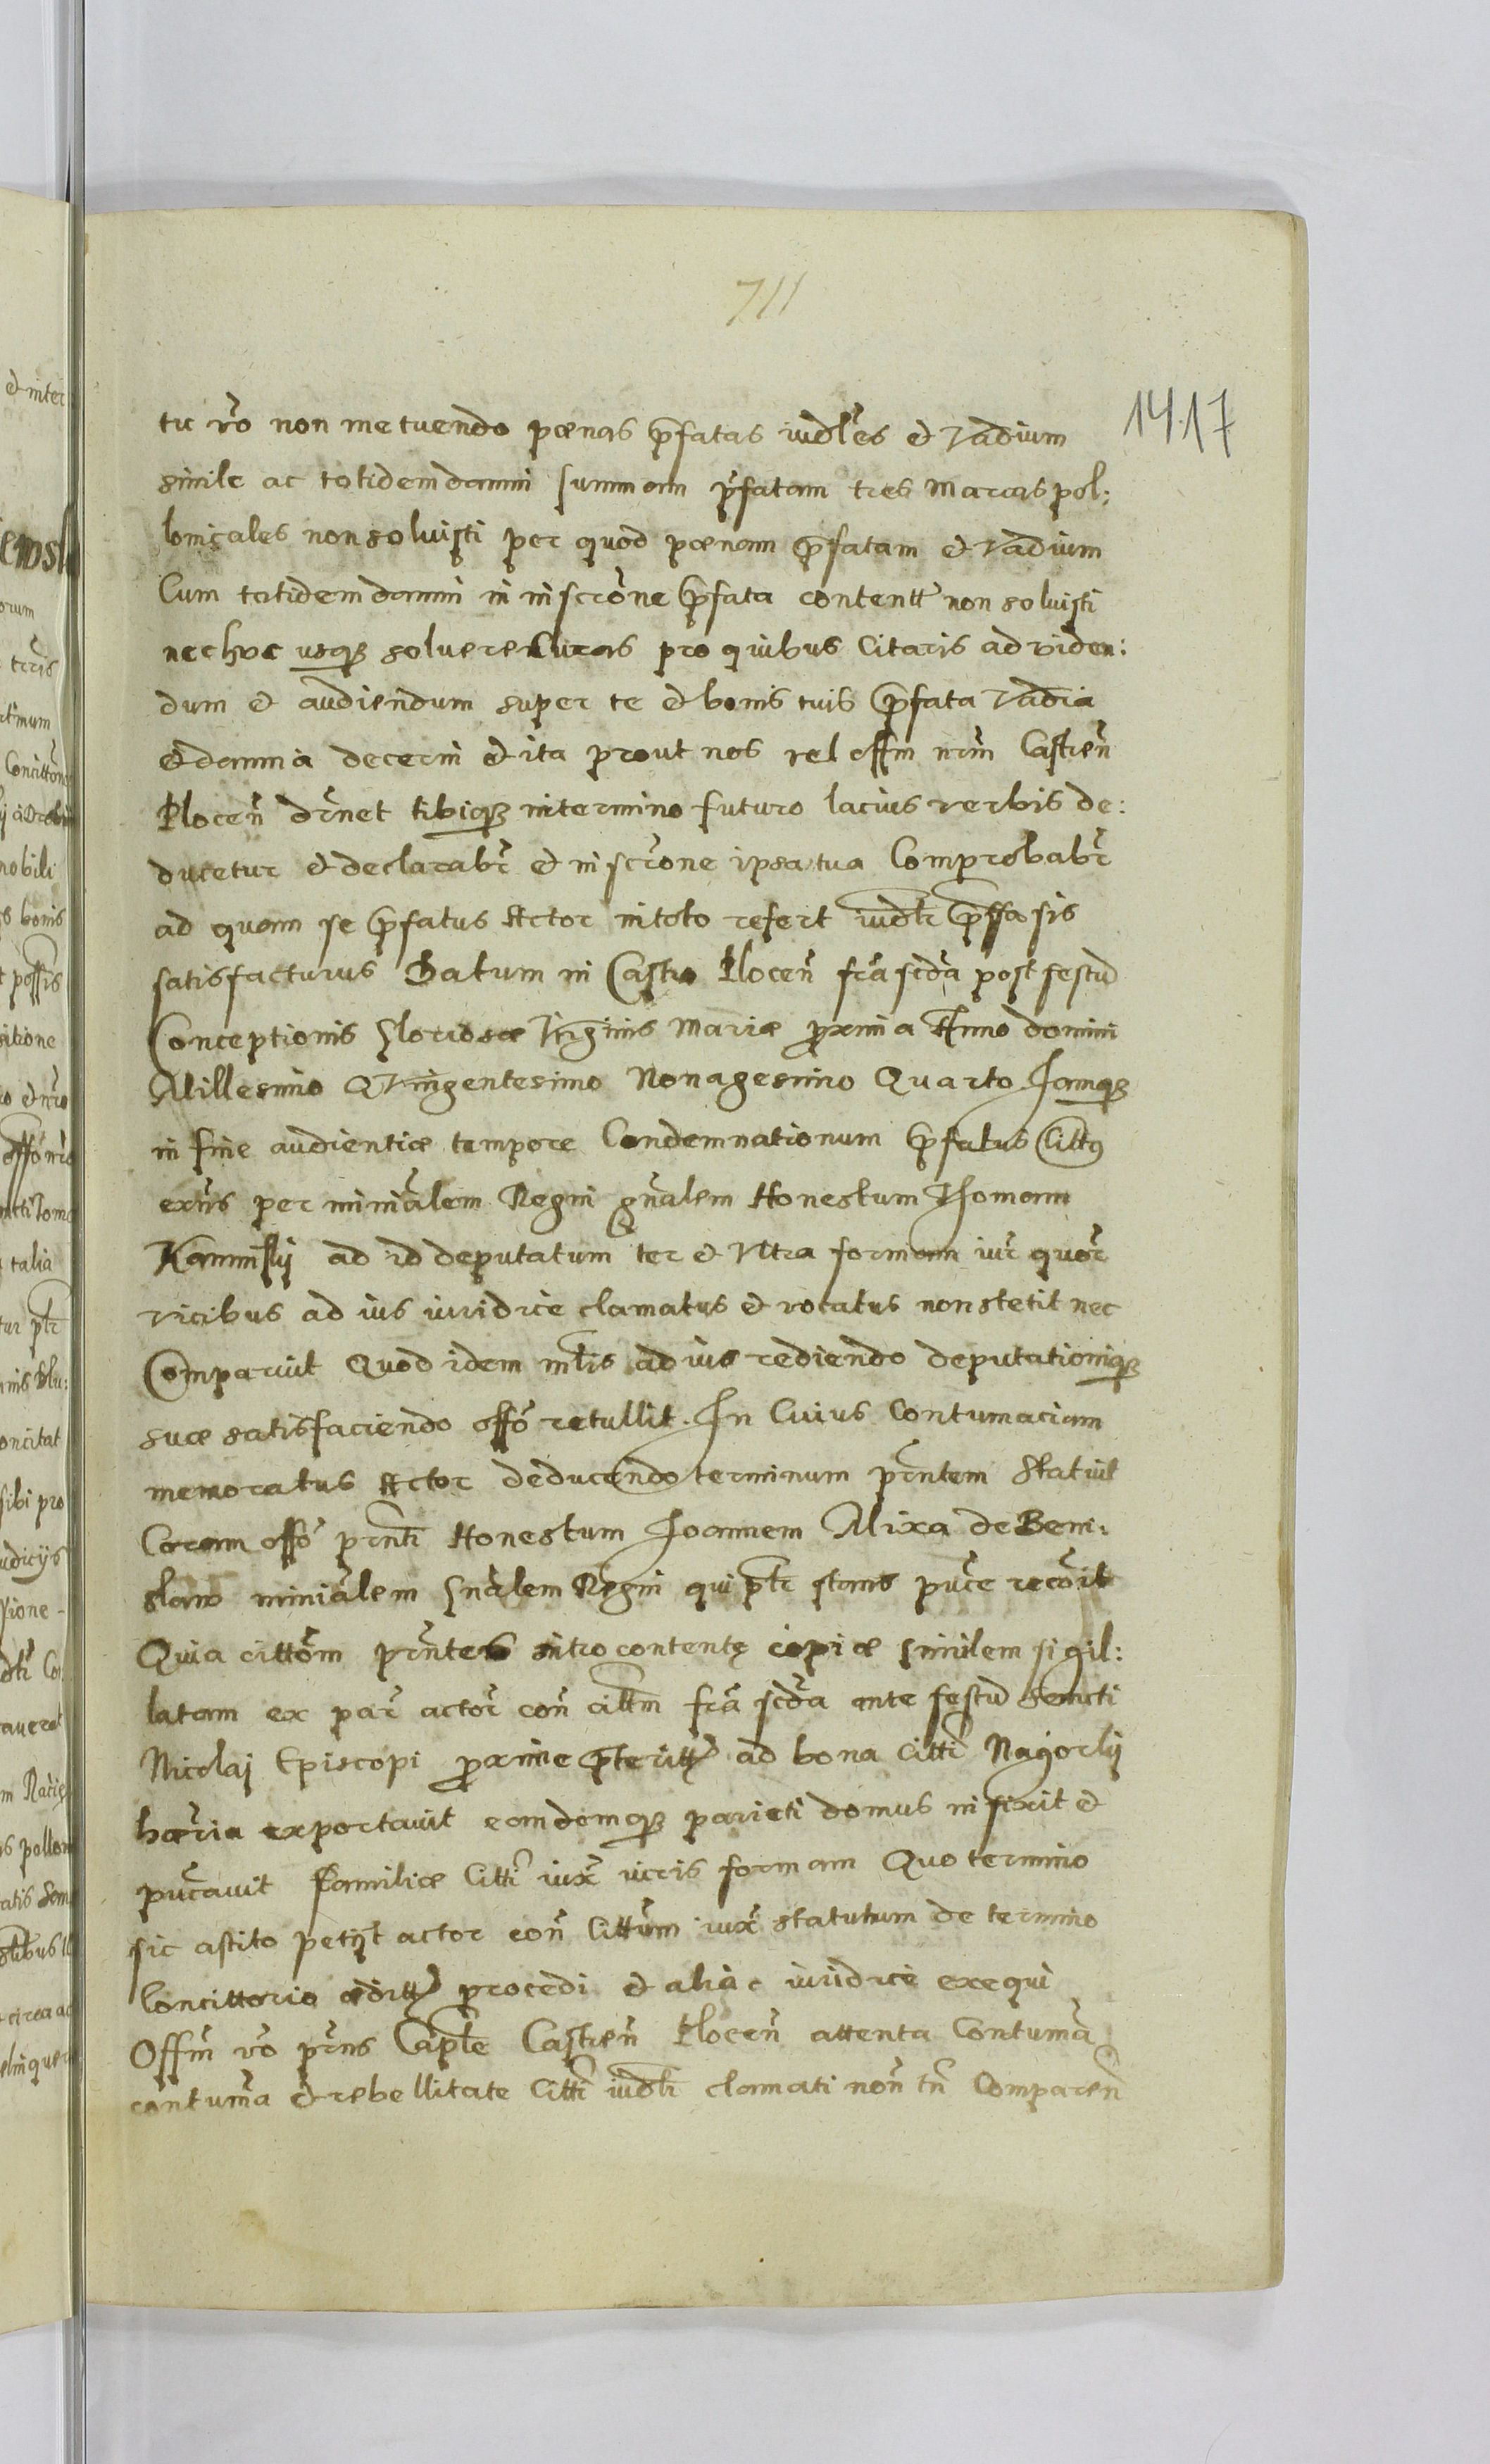 711
1417
tu vo non metuendo poenas pfatas iudles et vadium
simile ac totidem damni summam pfatam tres Marcas pol:
lonicales non soluisti per quod poenam pfatam et vadium
Cum totidem damni in inscrone pfata contentt non soluisti
nec huc usq soluere Curas pro quibus Citaris ad viden:
dum et audiendum super te et bonis tuis pfata vadia
et damna decerni et ita prout nos vel offm nrm Castren
Plocen drnet tibiq in termino futuro lacius verbis de:
ducetur et declarabr et inscrone ipsa tua Comprobabr
ad quam se pfatus Actor in toto refert iudtr pssa sis
satisfacturus Datum in Castro Plocen fra scda post festu
Conceptionis Gloriosae Virginis Mariae proxima Anno domini
Millesimo Quingentesimo Nonagesimo Quarto Iamq
in fine audientiae tempore Condemnationum pfatus Citts
exns per minialem Regni gnalem Honestum Thomam
Kaminsky ad id deputatum ter et vltra formam iur quor
vicibus ad ius iuridice clamatus et vocatus non stetit nec
Comparuit Quod idem mtlis ad ius rediendo deputationiq
suae satisfaciendo offo retullit. In Cuius Contumaciam
memoratus Actor deducendo terminum prntem Statuit
Coram offo prnti Honestum Joannem Mixa de Beni:
slaw minialem Gnalem Regni qui ptr stans puce recoit
Quia cittom prntes introcontente copiae similem sigil:
latam ex par actor con cittm fra scda ante festu Sancti
Nicolaj Episcopi proxime pteritt ad bona Citti Nagorky
haeria exportavit eamdemq parieti domus infixit et
pucavit familiae Citti iux iuris formam Quo termino
sic astito petijt actor con Cittum iux statutum de termino
Concittorio editt procedi et alia iuridice exequi
Offm vo prns Captle Castren Plocen attenta Contuma
contuma et rebellitate Citti iudtr clamati non tn Comparen